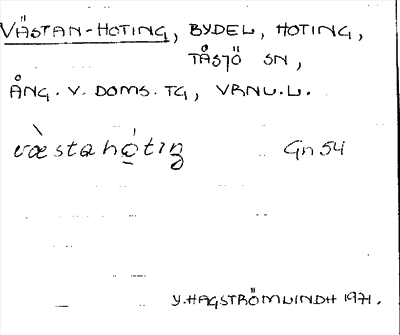 VÄSTAN-HOTING, BYDEL, HOTING,
TÅSJÖ SN,
ÅNG. V. DOMS. TG, VRNU.L.
væ̀stahọ́tiŋ Gn 54
Y. HAGSTRÖMLINDH 1971.